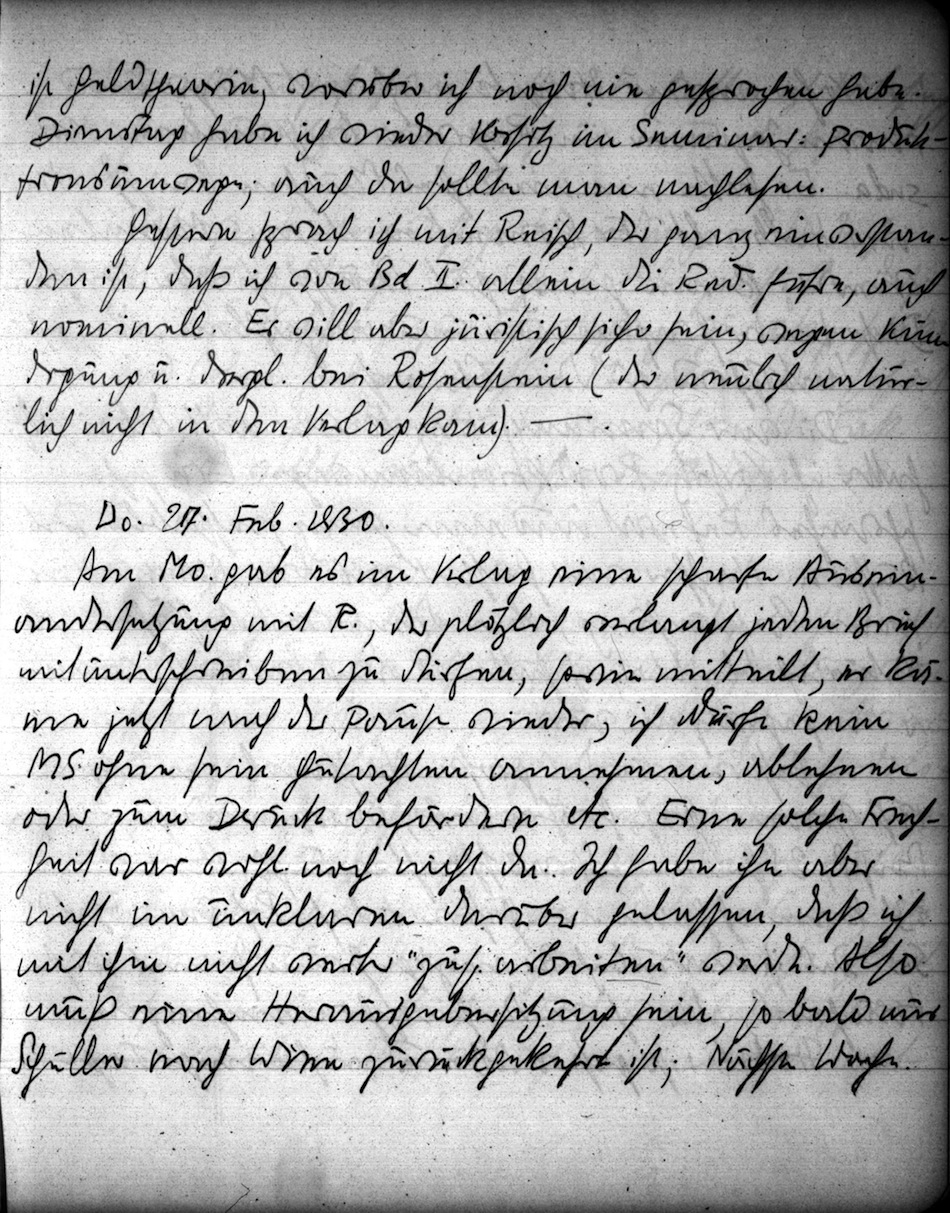 ist Geldtheorie, worüber ich noch nie gesprochen habe.
Dienstag habe ich wieder Vorsitz im Seminar: Produk-
tionsumwege; auch da sollte man nachlesen.
Gestern sprach ich mit Reisch, der ganz einverstan-
den ist, daß ich von Bd II. allein die Red. führe, auch
nominell. Er will aber juristisch sicher sein, wegen Kün
digung u. dergl. bei Rosenstein (der neulich natür-
lich nicht in den Verlag kam). —.
Do. 27. Feb. 1930.
Am Mo. gab es im Verlag eine scharfe Ausein-
andersetzung mit R., der plötzlich verlangt jeden Brief
mitunterschreiben zu dürfen, sowie mitteilt, er kä-
me jetzt nach der Pause wieder, ich dürfe kein
MS. ohne sein Gutachten annehmen, ablehnen
oder zum Druck befördern etc. Eine solche Frech-
heit war wohl noch nicht da. Ich habe ihn aber
nicht im unklaren darüber gelassen, daß ich
mit ihm nicht weiter "zus. arbeiten" werde. Also
muß eine Herausgebersitzung sein, so bald nur
Schüller nach Wien zurückgekehrt ist; Nächste Woche.